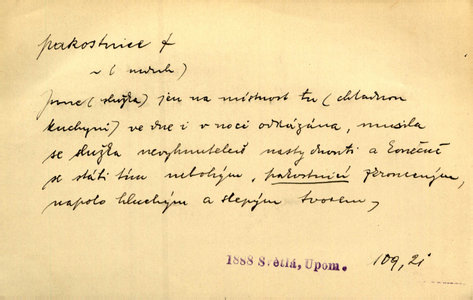 pakostnice f
~ (neduh)
Jsouc (služka) jen na místnost tu (chladnou
kuchyni) ve dne i v noci odkázána, musila
se služka nevyhnutelně nastydnouti a konečně
se státi tím nebohým, pakostnicí zkrouceným,
napolo hluchým a slepým tvorem,
1888 Světlá, Upom. 109, 2i